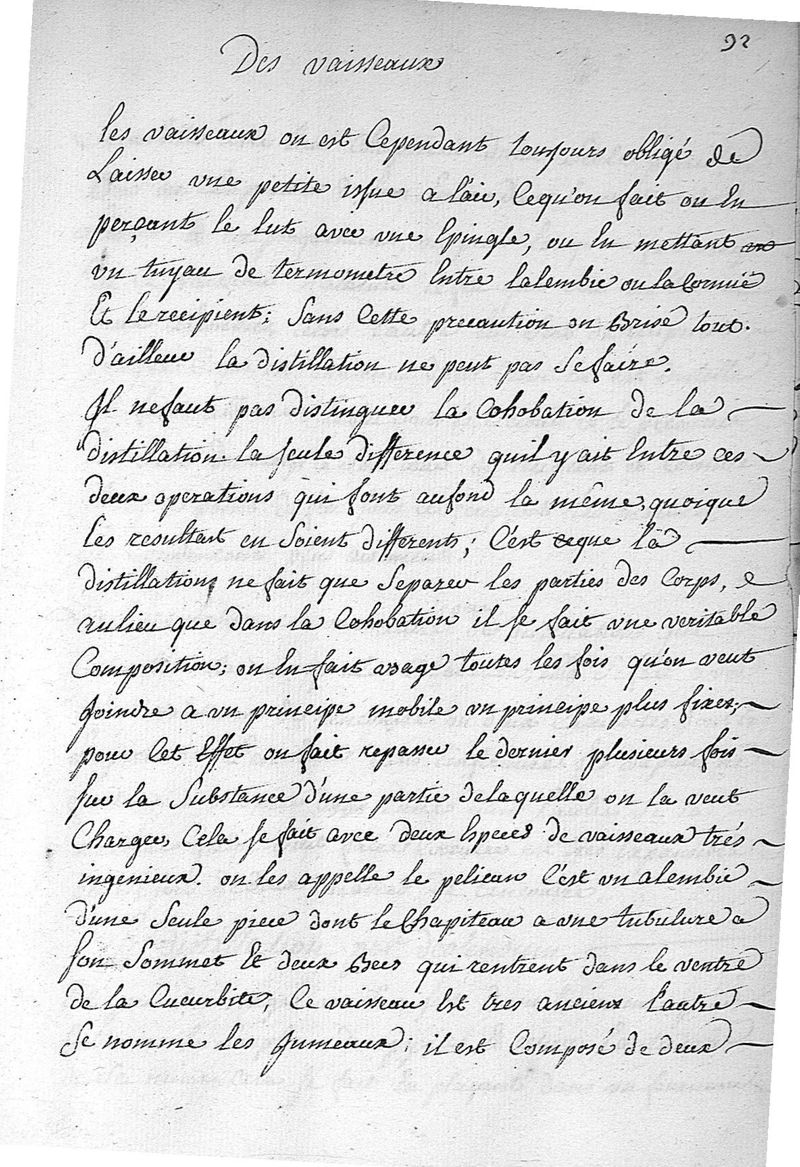 92
Des vaisseaux
les vaisseaux on est Cependant toujours obligé de
Laisser une petite issue a l'air, Cequ'on fait ou En
perçant le lut avec une Epingle, ou En mettant
un tuyau de termometre Entre lalembic ou la Cornuë
Et le recipient; Sans Cette precaution on Brise tout.
D'ailleur la distillation ne peut pas Se faire.
Il nefaut pas distinguer la Cohobation de la
distillation. la seule difference quil y ait Entre ces
deux operations qui sont aufond la même, quoique
les resultant en Soient differents; C'est ceque la
distillation ne fait que Separer les parties des Corps,
aulieu que dans la Cohobation il se fait une veritable
Composition; on En fait usage toutes les fois qu'on veut
Joindre a un principe mobile un principe plus fixe;
pour Cet Effet on fait repasser le dernier plusieurs fois
sur la Substance d'une partie delaquelle on la veut
Charger, Cela se fait avec deux Especes de vaisseaux trés
ingenieux. on les appelle le pelican C'est un alembic
d'une Seule piece dont le Chapiteau a une tubulure a
son Sommet Et deux Becs qui rentrent dans le ventre
de la Cucurbite, Ce vaisseau Est tres ancien l'autre
Se nomme les Jumeaux; il est Composé de deux